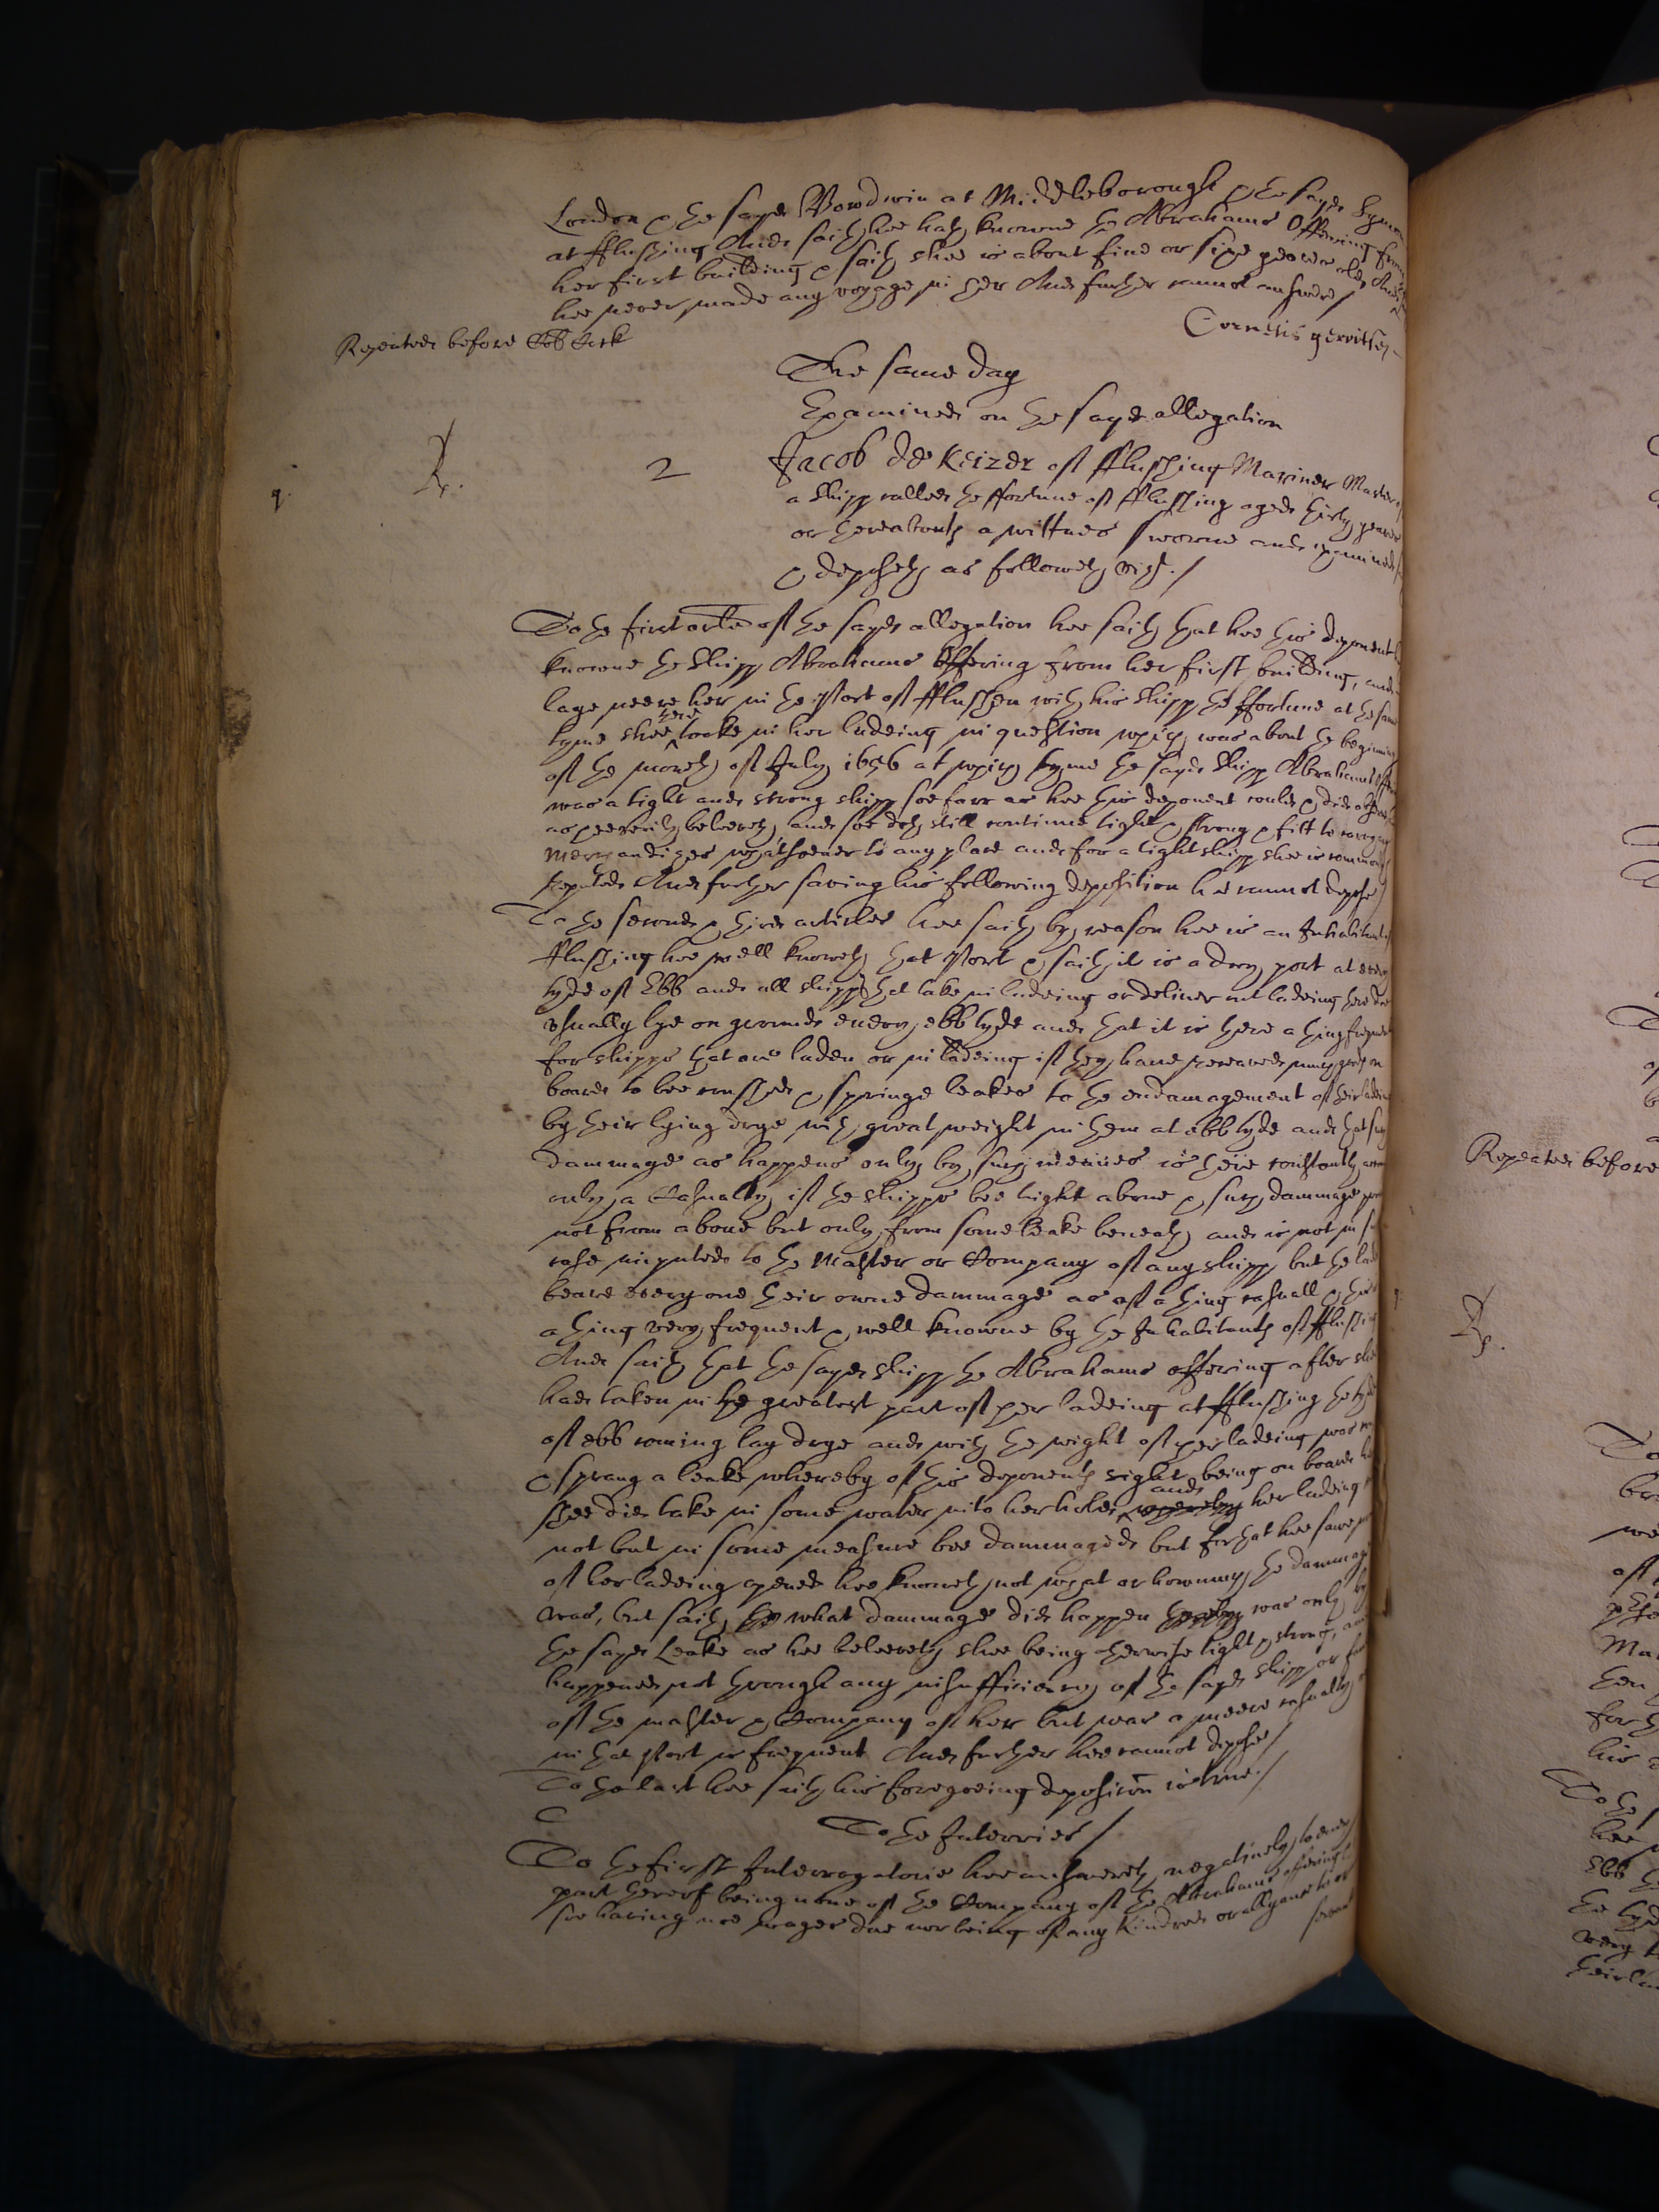 London & the sayd Bowdwin at Middleborough & the sayd Symon
at fflushing And saith hee hath knowne the Abrahams Offering from
her first building & saith shee is about five or sixe yeares old, And
hee never made any voyage in her And further cannot answere /
Cornelis gerritsen
Repeated before
The same day
Examined on the sayd allegation
q.
Rp.
2
Jacob de Keizer of fflushing Mariner Master of
a shipp called the ffortune of fflushing aged thirty yeares
or thereabouts a wittnes sworne and examined
& deposeth as followeth vizt. /
To the first article of the sayd allegation hee saith that hee this deponent
knowne the shipp Abrahams Offering from her first building, and
laye neere her in the Port of fflushen with his shipp the ffortune at the same
tyme shee there tooke in her ladeing in question which was about the beginning
of the moneth of July 1656 at which tyme the sayd shipp Abrahams
was a tight and strong shipp soe farr as hee this deponent could & did
as hee verily beleeveth, and soe doth still continue tight & strong & fitt to carry any
Merchandizes whatsoever to any place and for a tight shipp shee is commonly
reputed And further saving his following deposition hee cannot depose /
To the second & third articles hee saith by reason hee is an Inhabitant
fflushing hee well knoweth that Port & saith it is a dry port at every
tyde of Ebb and all shipps that take in ladeing or deliver out ladeing there doe
usually lye on ground every ebb tyde and that it is there a thing frequent
for shipps that are laden or in ladeing if they have receaved many goods on
board to bee crushed & springe leakes to the endamagement of their ladeing
by their lying drye with great weight in them at ebb tyde and that such
dammage as happens only by such meanes is there constantly
only a Casualty if the shipps bee tight above & such dammage
not from above but only from some leake beneath and is not in such
case imputed to the Master or Company of any shipp but the
beare every one their owne dammage as of a thing casuall & this
a thing very frequent & well knowne by the Inhabitants of fflushing
And saith that the sayd shipp the Abrahams offering after shee
had taken in the greatest part of her ladeing at fflushing the tyde
of ebb coming lay drye and with the weight of her ladeing was
& sprang a leake whereby of this deponents sight being on board
shee did take in some water into her hold, whereby and her ladeing
not but in some measure bee dammaged but for that hee sawe
of her ladeing opened hee knoweth not what or how much the dammage
was, but saith the what dammage did happen thereby was only by
the sayd Leake as hee beleeveth shee being otherwise tight & strong, and
happened not through any insufficiency of the sayd shipp or
of the master & Company of her but was a meere casualty
in that Port is frequent And further hee cannot depose /
To the last hee saith his foregoeing deposicon is true. /
To the Interries /
To the first Interrogatorie hee answereth negatively to every
part thereof being none of the Company of the Abrahams offering
soe having noe wages due nor being of any kindred or allyance to